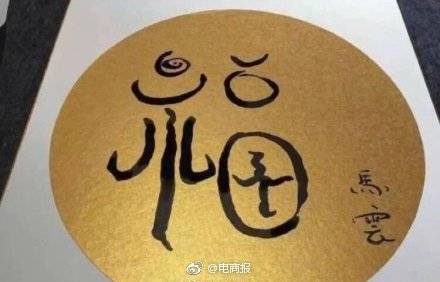 福
馬雲
@电商报